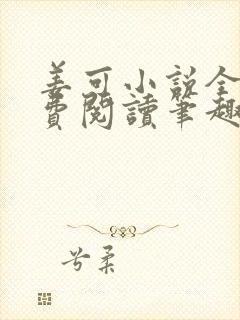 姜可小說全
費閱讀筆趣
兮柔